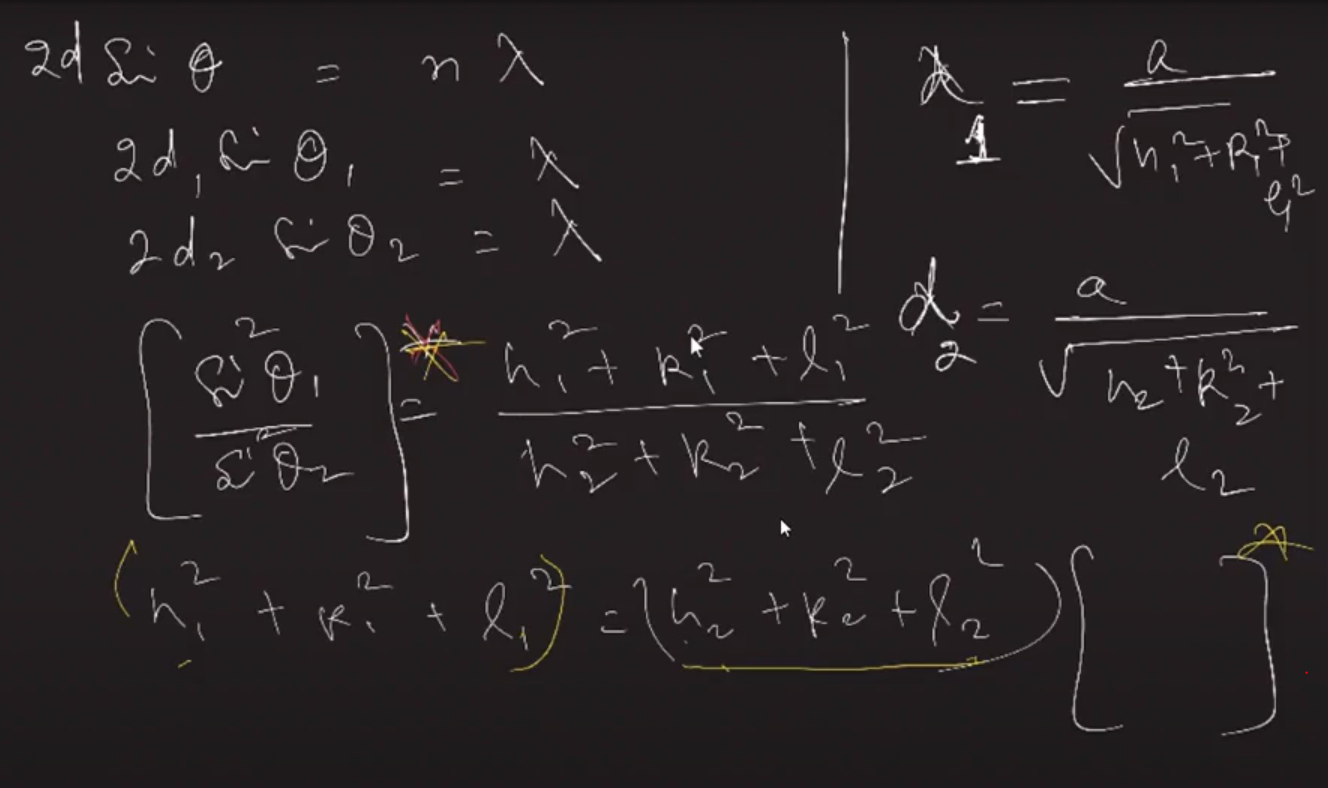 2d Sin θ = n λ
2d₁ Sin θ₁ = λ
2d₂ Sin θ₂ = λ
[Sin²θ₁ / Sin²θ₂] = h₁² + k₁² + l₁² / h₂² + k₂² + l₂²
(h₁² + k₁² + l₁²) = (h₂² + k₂² + l₂²) [ ]
d₁ = a / √h₁² + k₁² + l₁²
d₂ = a / √h₂ + k₂² + l₂